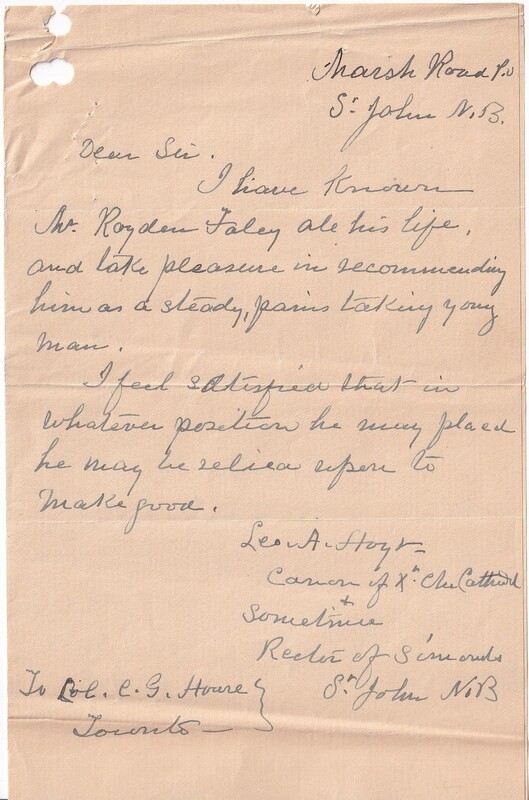 Marsh Road P.O
St John N.B.
Dear Sir.
I have known
Mr. Royden Foley all his life,
and take pleasure in recommending
him as a steady, pains taking young
man.
I feel satisfied that in
whatever position he may placed
he may be relied upon to
make good.
Leo. A. Hoyt
Canon of Xt Ch. Cathedral
&
Sometime
Rector of Simonds
St John N.B
To Col. C. G.
Toronto